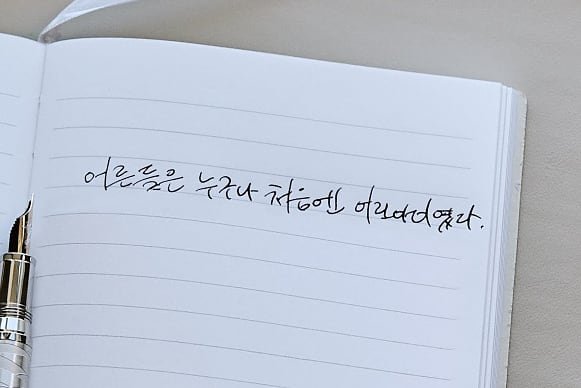 어른들은 누구나 처음엔 어린아이였다.